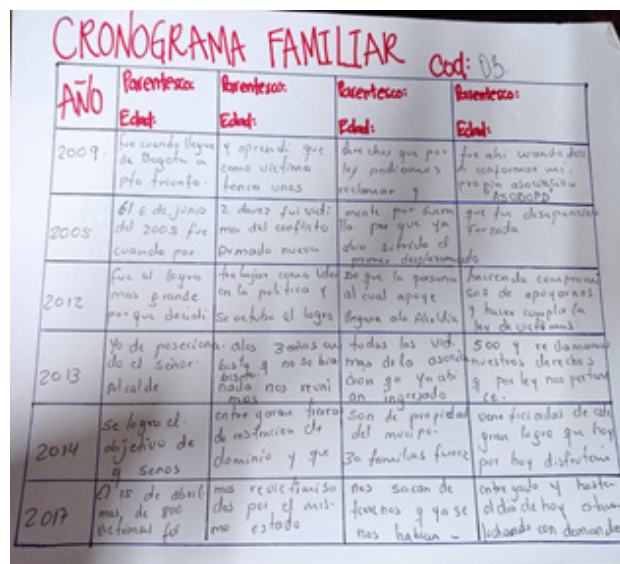 CRONOGRAMA FAMILIAR Cod: 03.
AÑO
Parentesco:
Edad:
Parentesco:
Edad:
Parentesco:
Edad:
Parentesco:
Edad:
2009.
fue cuando llegue
de Bogota a
pto triunfo.
y aprendi que
como victima
tenia unos
derechos que por
ley podiamos
reclamar y
fue ahi cuando
di conformar mi
propia asociación
"ASODOPD"
2005
El 6 de junio
del 2005 fue
cuando por
2 davez fui victi
ma del conflicto
Armado nueva
mente por
la por que ya
abia sufrido el
primer desplazamiento
que fue desaparición
Forzada
2012
fue el logro
mas grande
por que decidi
trabajar como lider
en la politica y
se octubo el logro
De que la persona
al cual apoye
llegara ala Alcaldia
haciendo compromi
sos de apoyarnos
y hacer cumplir la
ley de victimas.
2013
Yo de poseciona-
do el señor
Alcalde
alos 3 años en
busta q no se bia
nada nos reuni
mos
todas las victi
mas dela asocia
cion go ya abi
an ingresado
500 y reclamamos
nuestros derechos
q por ley nos pertene
ce.
2014
se logro el
objetivo de
q senos
entregaran tierras
de instincion de
dominio y que
son de propiedad
del mucipo.
30 familias fueron
veneficiadas de este
gran logro que hoy
por hoy disfrutam
2017
El 15 de abril
mas, de 800
victimas fui
mos revictimisa
dos por el mis-
mo estado
nos sacan de
terrenos q ya se
nos habian -
entregado y hasta
el dia de hoy estamos
luchando con demandas